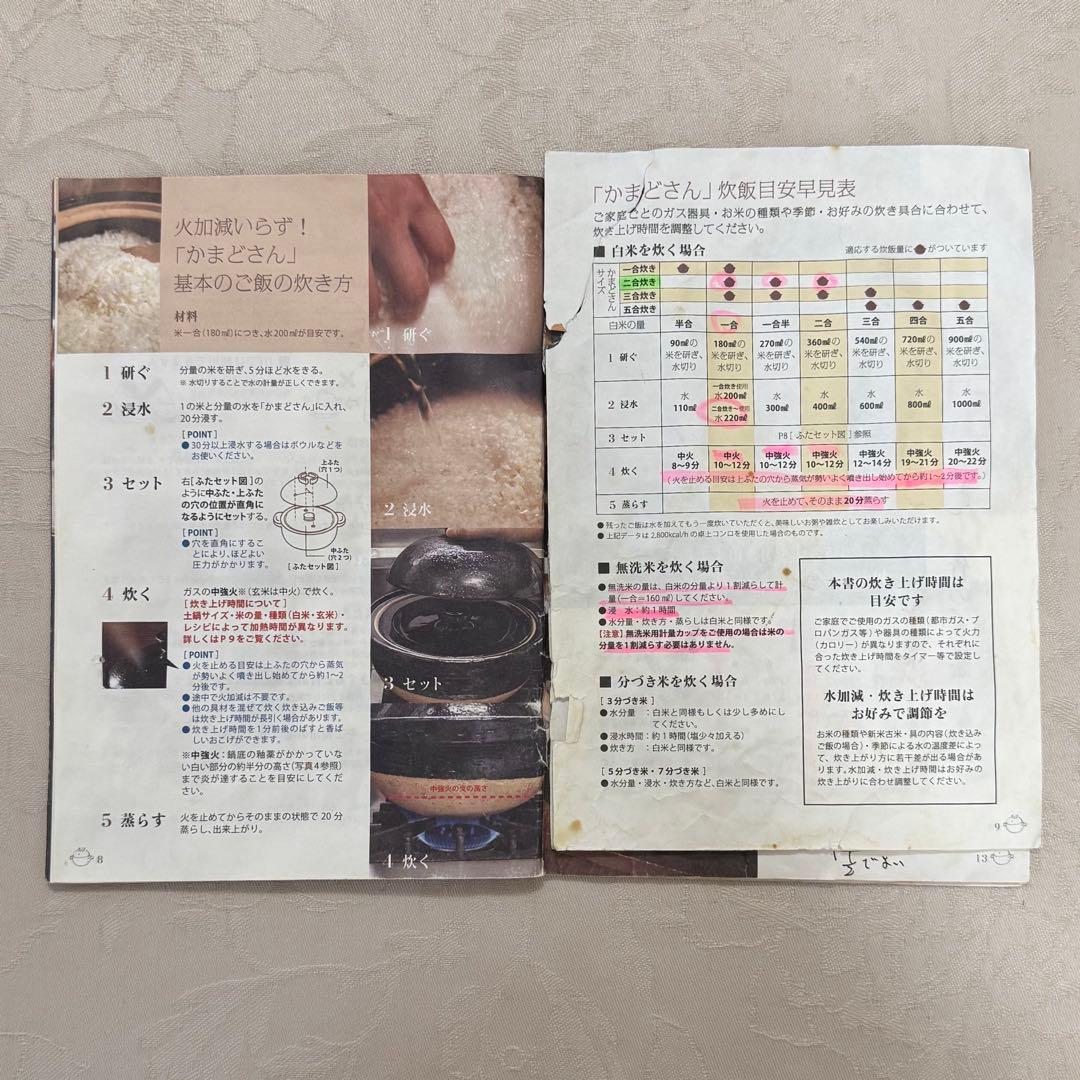 火加減いらず！
「かまどさん」
基本のご飯の炊き方
材料
米一合(180㎖)につき、水200㎖が目安です。
1 研ぐ
分量の米を研ぎ、5分ほど水をきる。
※ 水切りすることで水の計量が正しくできます。
2 浸水
1の米と分量の水を「かまどさん」に入れ、
20分浸す。
[POINT]
●30分以上浸水する場合はボウルなどを
お使いください。
3 セット
右[ふたセット図]の
ように中ふた・上ふた
の穴の位置が直角に
なるようにセットする。
[POINT]
●穴を直角にするこ
とにより、ほどよい
圧力がかかります。
上ふた
(穴1つ)
中ふた
(穴2つ)
[ふたセット図]
4 炊く
ガスの中強火※(玄米は中火)で炊く。
[炊き上げ時間について]
土鍋サイズ・米の量・種類(白米・玄米)・
レシピによって加熱時間が異なります。
詳しくはP9をご覧ください。
[POINT]
●火を止める目安は上ふたの穴から蒸気
が勢いよく噴き出し始めてから約1〜2
分後です。
●途中で火加減は不要です。
●他の具材を混ぜて炊く炊き込みご飯等
は炊き上げ時間が長引く場合があります。
●炊き上げ時間を1分前後のばすと香ば
しいおこげができます。
※中強火：鍋底の釉薬がかかっていな
い白い部分の約半分の高さ(写真4参照)
まで炎が達することを目安にしてくだ
さい。
5 蒸らす
火を止めてからそのままの状態で20分
蒸らし、出来上がり。
8
1 研ぐ
2 浸水
3 セット
中強火の炎の高さ
4 炊く
「かまどさん」炊飯目安早見表
ご家庭ごとのガス器具・お米の種類や季節・お好みの炊き具合に合わせて、
炊き上げ時間を調整してください。
■ 白米を炊く場合
適応する炊飯量に●がついています
かまどさんサイズ
一合炊き ● ●
二合炊き ● ● ●
三合炊き ● ● ● ●
五合炊き ● ● ●
白米の量 半合 一合 一合半 二合 三合 四合 五合
1 研ぐ 90㎖の米を研ぎ、水切り 180㎖の米を研ぎ、水切り 270㎖の米を研ぎ、水切り 360㎖の米を研ぎ、水切り 540㎖の米を研ぎ、水切り 720㎖の米を研ぎ、水切り 900㎖の米を研ぎ、水切り
2 浸水 水110㎖ 一合炊き使用 水200㎖ 二合炊き〜使用 水220㎖ 水300㎖ 水400㎖ 水600㎖ 水800㎖ 水1000㎖
3 セット P8[ふたセット図]参照
4 炊く 中火8〜9分 中火10〜12分 中強火10〜12分 中強火10〜12分 中強火12〜14分 中強火19〜21分 中強火20〜22分
(火を止める目安は上ふたの穴から蒸気が勢いよく噴き出し始めてから約1〜2分後です。)
5 蒸らす 火を止めて、そのまま20分蒸らす
●残ったご飯は水を加えてもう一度炊いていただくと、美味しいお粥や雑炊としてお楽しみいただけます。
●上記データは2,800kcal/hの卓上コンロを使用した場合のものです。
■ 無洗米を炊く場合
●無洗米の量は、白米の分量より1割減らして計
量(一合=160㎖)してください。
●浸 水：約1時間
●水分量・炊き方・蒸らしは白米と同様です。
[注意] 無洗米用計量カップをご使用の場合は米の
分量を1割減らす必要はありません。
■ 分づき米を炊く場合
[3分づき米]
●水分量 ：白米と同様もしくは少し多めにし
てください。
●浸水時間：約1時間(塩少々加える)
●炊き方 ：白米と同様です。
[5分づき米・7分づき米]
●水分量・浸水・炊き方など、白米と同様です。
本書の炊き上げ時間は
目安です
ご家庭でご使用のガスの種類(都市ガス・プ
ロパンガス等)や器具の種類によって火力
(カロリー)が異なりますので、それぞれに
合った炊き上げ時間をタイマー等で設定し
てください。
水加減・炊き上げ時間は
お好みで調節を
お米の種類や新米古米・具の内容(炊き込み
ご飯の場合)・季節による水の温度差によっ
て、炊き上がり方に若干差が出る場合があ
ります。水加減・炊き上げ時間はお好みの
炊き上がりに合わせ調整してください。
9
でよい
13